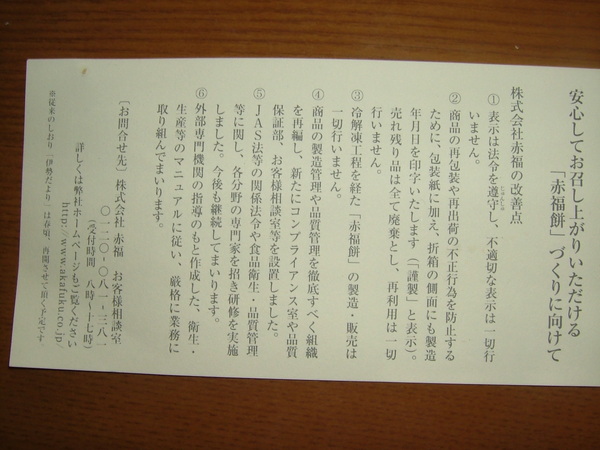 安心してお召し上がりいただける
「赤福餅」づくりに向けて
株式会社赤福の改善点
①表示は法令を遵守し、不適切な表示は一切行
いません。
②商品の再包装や再出荷の不正行為を防止する
ために、包装紙に加え、折箱の側面にも製造
年月日を印字いたします（「謹製」と表示）。
売れ残り品は全て廃棄とし、再利用は一切
行いません。
③冷解凍工程を経た「赤福餅」の製造・販売は
一切行いません。
④商品の製造管理や品質管理を徹底すべく組織
を再編し、新たにコンプライアンス室や品質
保証部、お客様相談室等を設置しました。
⑤JAS法等の関係法令や食品衛生・品質管理
等に関し、各分野の専門家を招き研修を実施
しました。今後も継続してまいります。
⑥外部専門機関の指導のもと作成した、衛生・
生産等のマニュアルに従い、厳格に業務に
取り組んでまいります。
〔お問合せ先〕株式会社 赤福 お客様相談室
〇一二〇-〇八一-三八一
（受付時間 八時〜十七時）
詳しくは弊社ホームページもご覧ください
http://www.akafuku.co.jp/
※従来のしおり「伊勢だより」は春頃、再開させて頂く予定です。